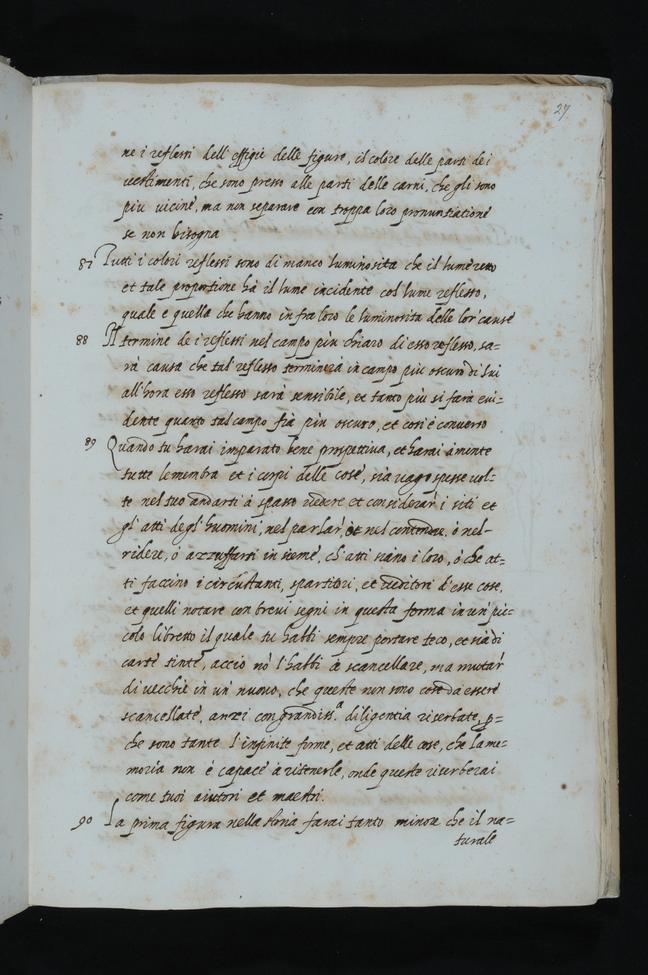 27
ne i reflessi dell'effigie delle figure, il colore delle parti dei
vestimenti, che sono presso alle parti delle carni, che gli sono
piu vicine, ma non separare con troppa loro pronuntiatione
se non bisogna
87 Tutti i colori reflessi sono di manco luminosita che il lume retto
et tale proportione hà il lume incidente col lume reflesso,
quale è quella che hanno infra loro le luminosita delle lor' cause
88 Il termine de i reflessi nel campo più chiaro di esso reflesso, sa=
rà causa che tal' reflesso terminerà in campo più oscuro di lui
all'hora esso reflesso sarà sensibile, et tanto più si farà eui=
dente quanto tal campo fia più oscuro, et cosi è conuerso
89 Quando tu harai imparato bene prospettiua, et harai à mente
tutte le membra et i corpi delle cose, sia uago spesse uol=
te nel tuo andarti à spasso uedere et considerar' i siti et
gl'atti degl'huomini, nel parlar', et nel contendere, ò nel
ridere, ò azzuffarsi insieme, ch'atti siano i loro, ò che at=
ti faccino i circustanti, spartitori, et ueditori d'esse cose,
et quelli notare con breui segni in questa forma in un' pic=
colo libretto il quale tu habbi sempre portare teco, et sia di
carte tinte, accio nò l'habbi à scancellare, ma mutar'
di uecchie in un' nuouo, che queste non sono cose da essere
scancellate, anzi con grandiss.a diligentia riserbate, p=
che sono tante l'infinite forme, et atti delle cose, che la me=
moria non è capace à ritenerle, onde queste riserberai
come tuoi aiutori et maestri.
90 La prima figura nella storia farai tanto minore che il na=
turale